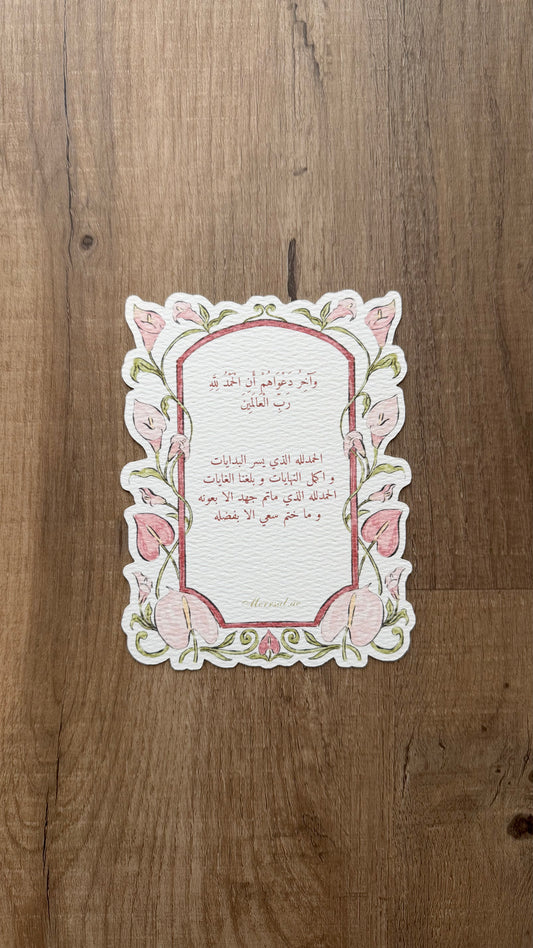 وَآخِرُ دَعْوَاهُمْ أَنِ الْحَمْدُ لِلَّهِ
رَبِّ الْعَالَمِينَ
الحمدلله الذي يسر البدايات
و اكمل النهايات و بلغنا الغايات
الحمدلله الذي ماتم جهد الا بعونه
و ما ختم سعي الا بفضله
Meersal.ae